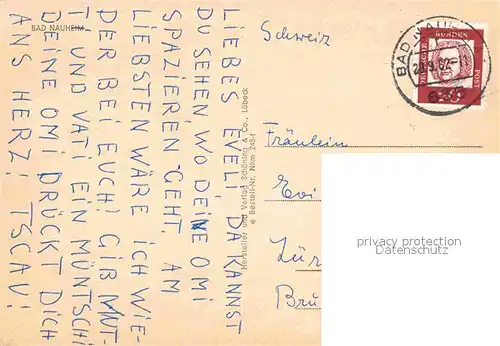 BAD NAUHEIM
LIEBES EVELI, DA KANNST
DU SEHEN WO DEINE OMI
SPAZIEREN GEHT. AM
LIEBSTEN WÄRE ICH WIE-
DER BEI EUCH! GIB MUT-
TI UND VATI EIN MÜNTSCHI
DEINE OMI DRÜCKT DICH
ANS HERZ! TSCAU!
Hersteller und Verlag Schöning & Co., Lübeck
Bestell-Nr. Nhm 2464
Schweiz
Fräulein
Evi
Zür
Brü
BAD NAUHEIM
DEUTSCHE BUNDESPOST
privacy protection
Datenschutz